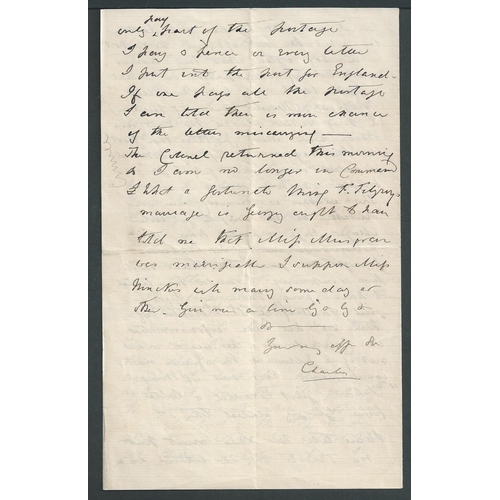 only pay part of the postage
I pay 3 pence on every letter
I put into the post for England.
If one pays all the postage
I am told there is more chance
of the letters miscarrying —
The Colonel returned this morning
& I am no longer in Command
What a fortunate thing
marriage is. Georgy ought to have
told me that Miss
was I suppose Miss
will marry some day or
other. Give me a line by & by &
&
Yours aff &c
Charles